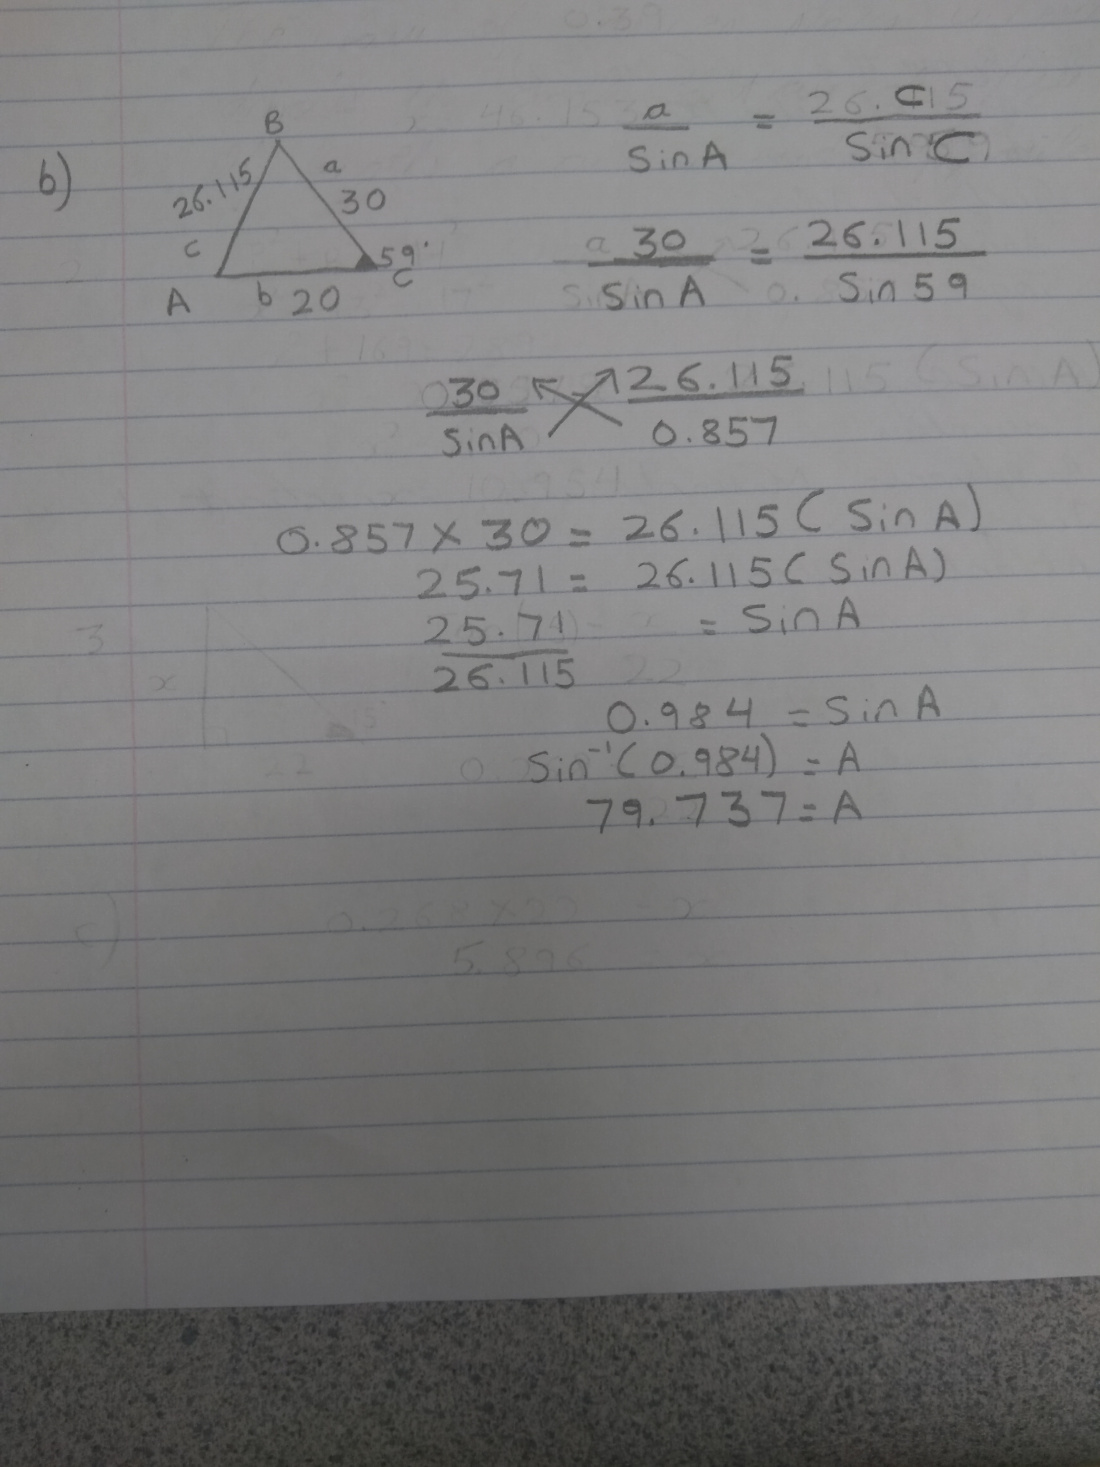 b)
B
26.115
a
30
c
59°
C
A
b 20
a/Sin A = c/Sin C
30/Sin A = 26.115/Sin 59
30/Sin A 26.115/0.857
0.857 × 30 = 26.115 ( Sin A )
25.71 = 26.115 ( Sin A )
25.71/26.115 = Sin A
0.984 = Sin A
Sin⁻¹ ( 0.984 ) = A
79.737 = A
3
x
c)
5.896